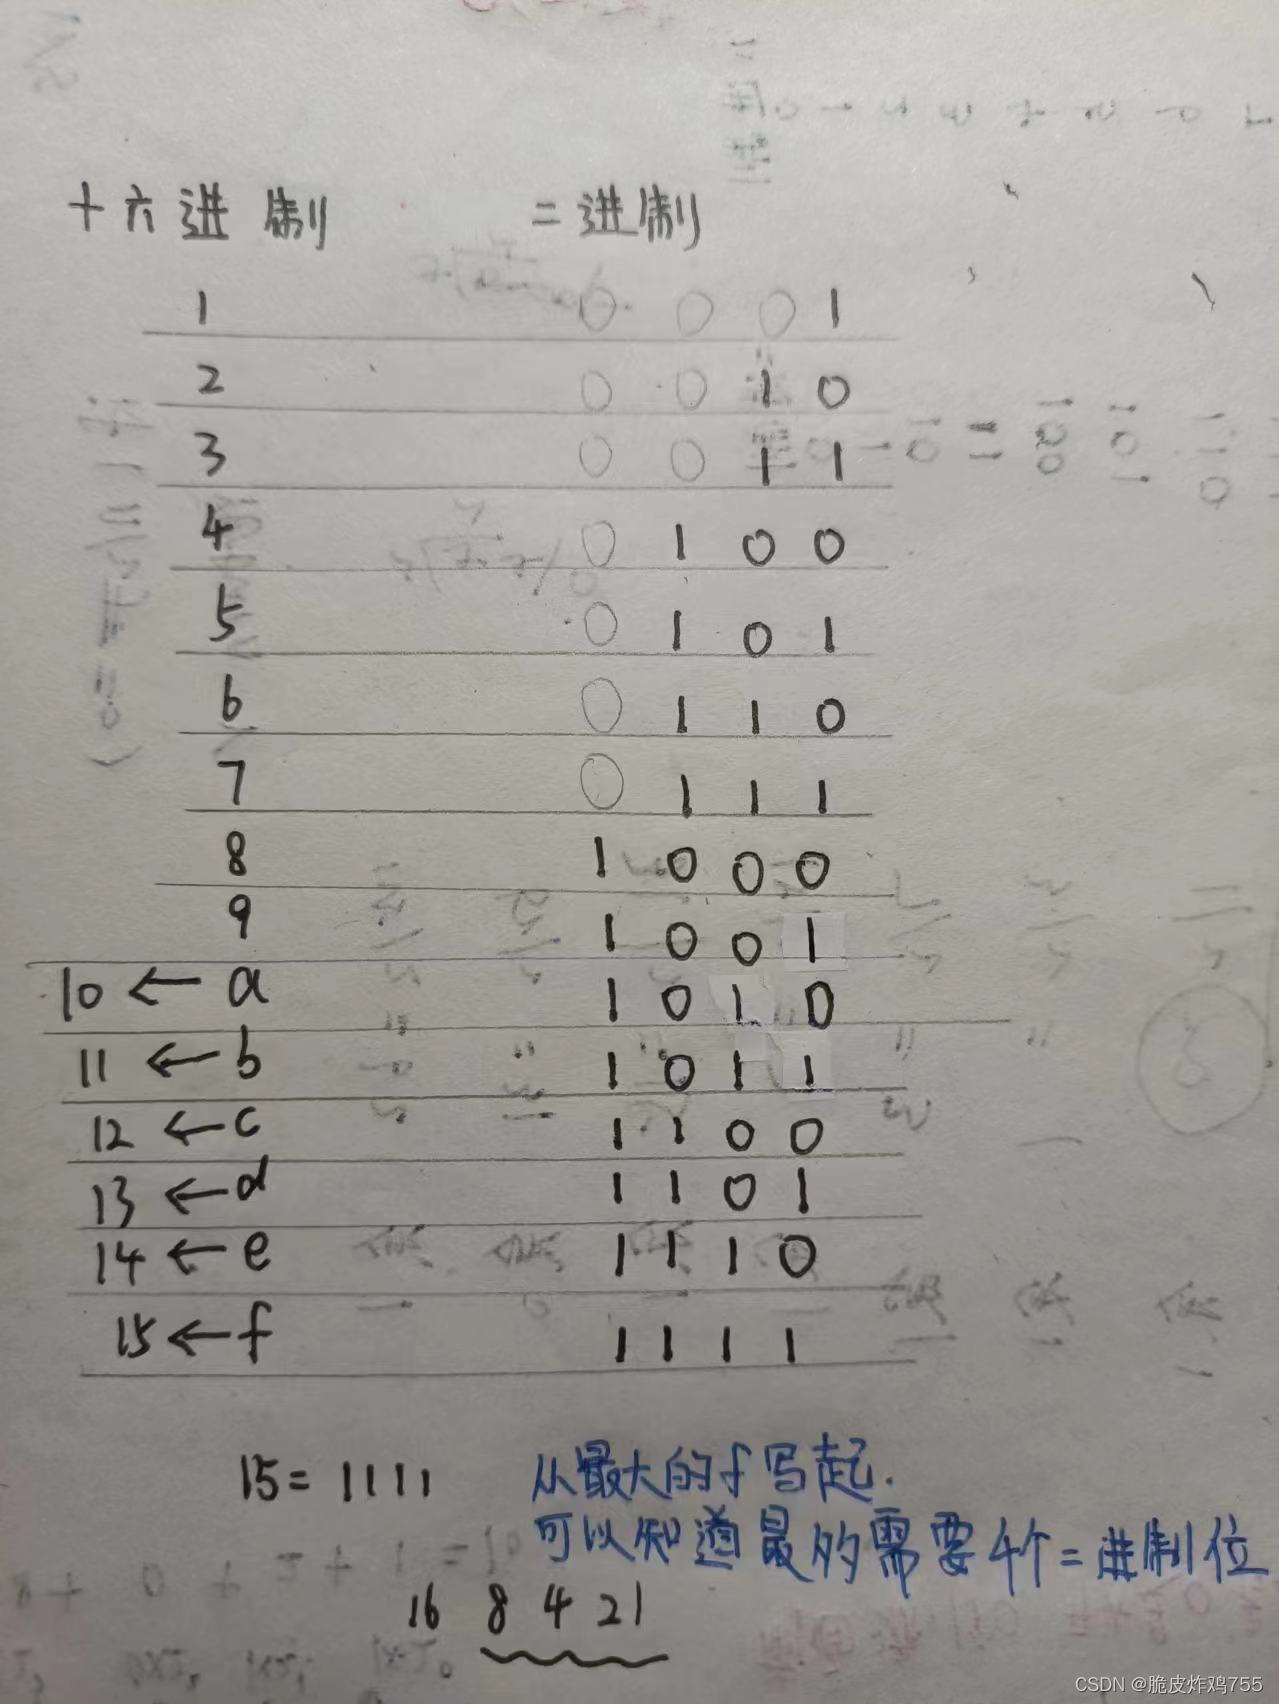 十六进制 二进制
1 0 0 0 1
2 0 0 1 0
3 0 0 1 1
4 0 1 0 0
5 0 1 0 1
6 0 1 1 0
7 0 1 1 1
8 1 0 0 0
9 1 0 0 1
10 ← a 1 0 1 0
11 ← b 1 0 1 1
12 ← c 1 1 0 0
13 ← d 1 1 0 1
14 ← e 1 1 1 0
15 ← f 1 1 1 1
15 = 1111 从最大的f写起.
可以知道最的需要4个二进制位
16 8 4 2 1
CSDN @脆皮炸鸡755